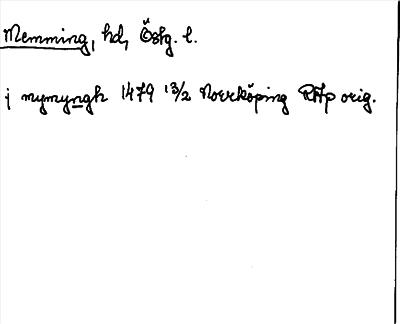 Memming, hd, Östg. l.
j mymyngh 1479 13/2 Norrköping RAp orig.